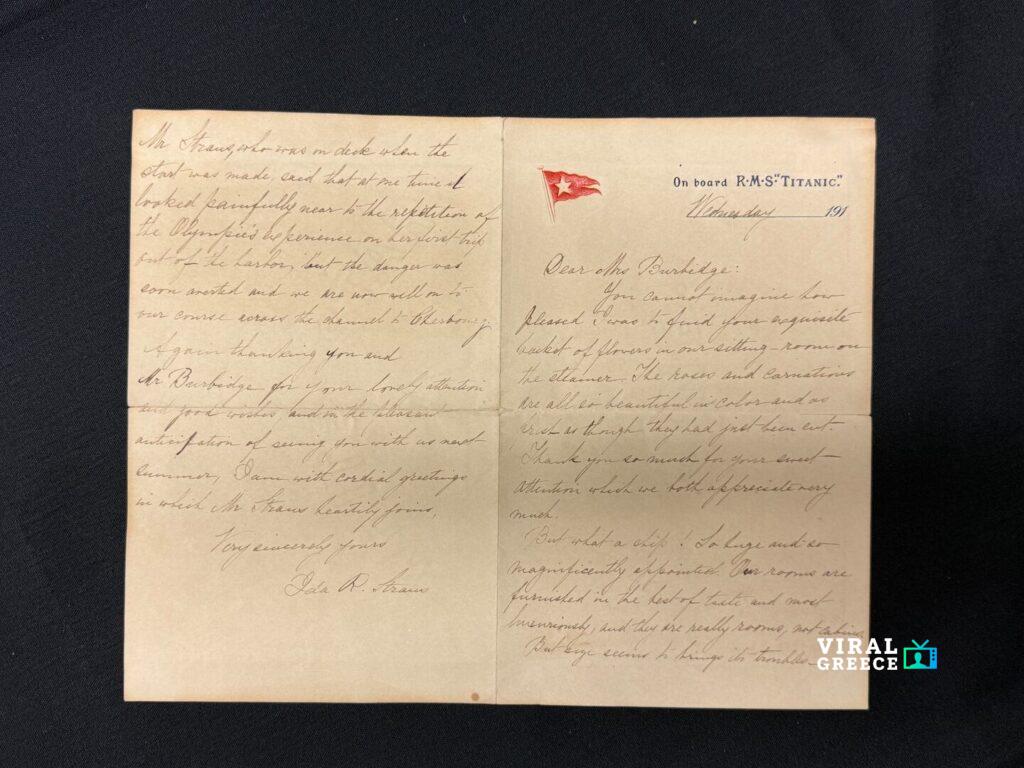 On board R·M·S·"TITANIC."
Wednesday 191
Dear Mrs Burbidge:
You cannot imagine how
pleased I was to find your exquisite
basket of flowers in our sitting-room on
the steamer. The roses and carnations
are all so beautiful in color and as
fresh as though they had just been cut.
Thank you so much for your sweet
attention which we both appreciate very
much.
But what a ship! So huge and so
magnificently appointed. Our rooms are
furnished in the best of taste and most
luxuriously, and they are really rooms, not cabins.
But size seems to brings its troubles—
Mr Straus, who was on deck when the
start was made, said that at one time it
looked painfully near to the repetition of
the Olympic's experience on her first trip
out of the harbor, but the danger was
soon averted and we are now well on to
our course across the channel to Cherbourg.
Again thanking you and
Mr Burbidge for your lovely attention
and good wishes and in the pleasant
anticipation of seeing you with us next
summer, I am with cordial greetings
in which Mr Straus heartily joins,
Very sincerely yours
Ida R. Straus
VIRAL
GREECE